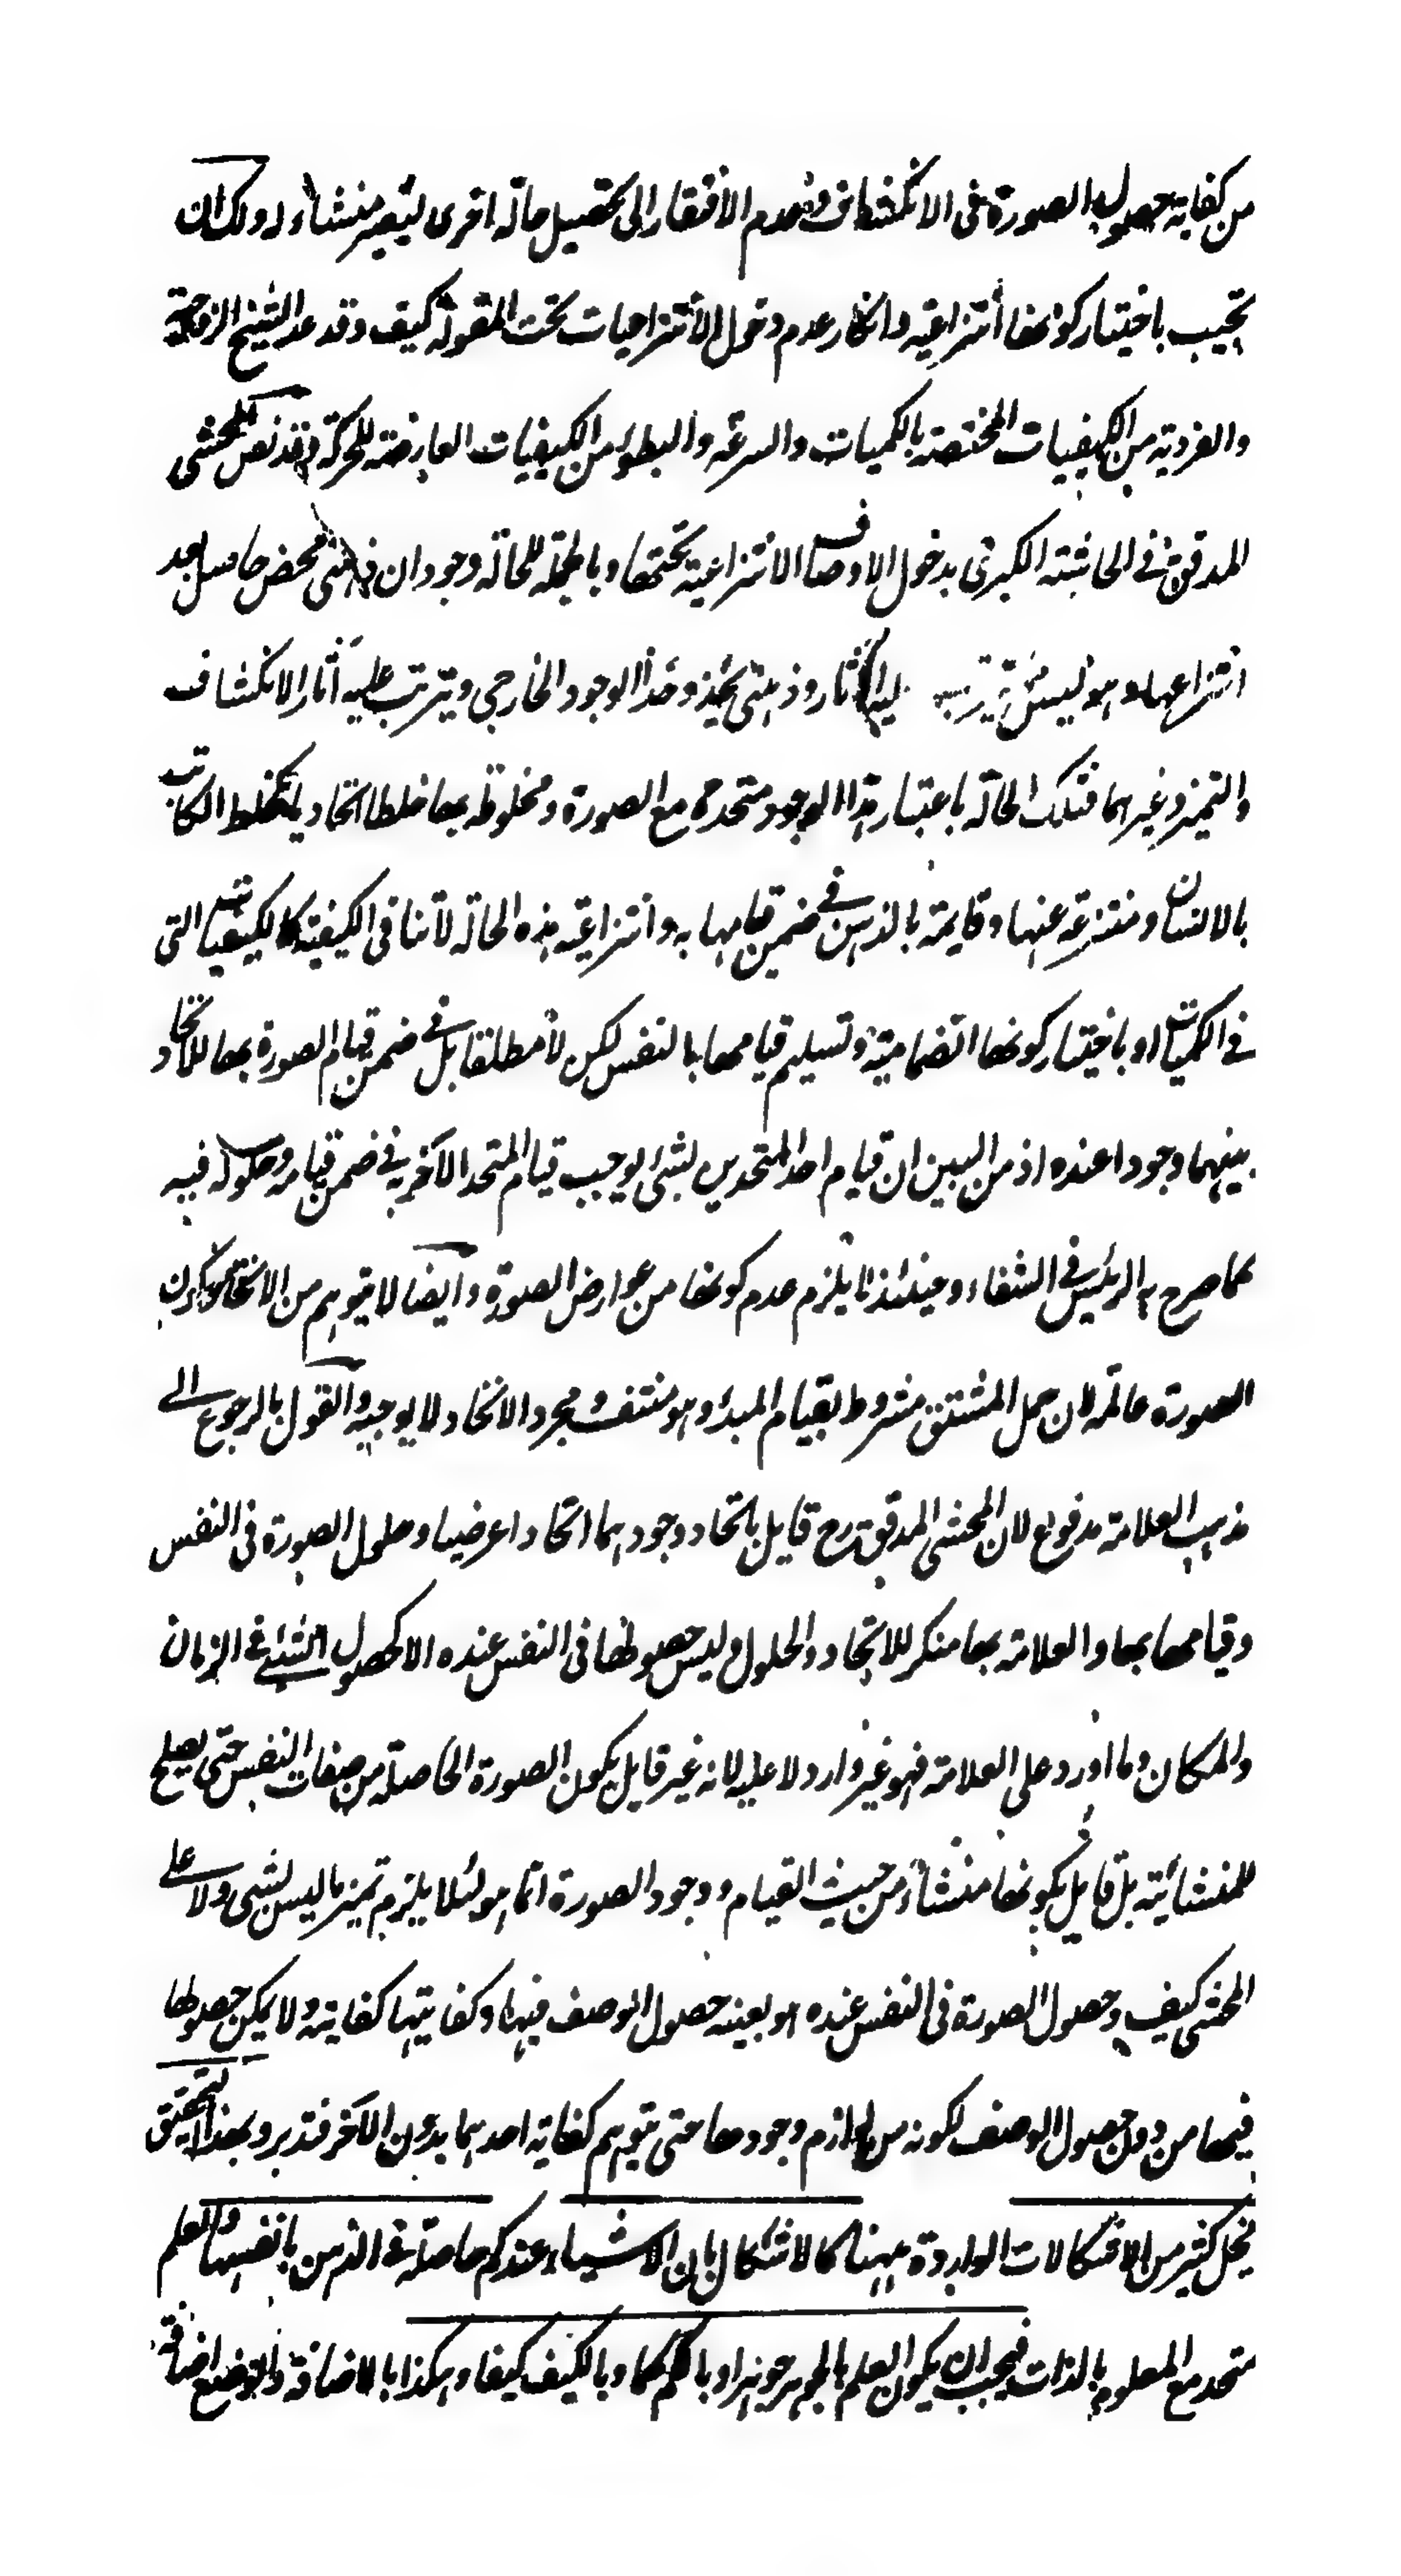 من كفاية حصول الصورة فى الانكشاف وعدم الافتقار الى تحصيل حالة اخرى ليصير منشاء له ولك ان
تجيب باختيار كونها انتزاعية وانكار عدم دخول الانتزاعيات تحت المقولة كيف وقد عد الشيخ الزوجية
والفردية من الكيفيات المختصة بالكميات والسرعة والبطوء من الكيفيات العارضة للحركة وقد نص المحشى
المدقق فى الحاشية الكبرى بدخول الاوصاف الانتزاعية تحتها وبالجملة للحالة وجودان ذهنى محض حاصل بعد
انتزاعها وهو ليس الاثار وذهنى يحذو حذا الوجود الخارجى ويترتب عليه آثار الانكشاف
والتميز وغيرهما فتلك الحالة باعتبار هذا الوجود متحدة مع الصورة ومخلوطة بها خلطا اتحاديا كخلط الكاتب
بالانسان ومنتزعة عنها وقايمة بالذهن فى ضمن قيامها به وانتزاعية هذه الحالة لا تنافى الكيفية كالكيفيات التى
فى الكميات او باختيار كونها انضمامية وتسليم قيامها بالنفس لكن لا مطلقا بل فى ضمن قيام الصورة بها للاتحاد
بينهما وجودا عنده اذ من البين ان قيام احد المتحدين بشئ يوجب قيام المتحد الآخر به فى ضمن قيامه وحلوله فيه
كما صرح به الرئيس فى الشفاء وحينئذ لا يلزم عدم كونها من عوارض الصورة وايضا لا يتوهم من الاتحاد كون
الصورة عالمة لان حمل المشتق مشروط بقيام المبدء وهو منتف ومجرد الاتحاد لا يوجبه والقول بالرجوع الى
مذهب العلامة مدفوع لان المحشى المدقق رح قايل باتحاد وجودهما اتحادا عرضيا وحلول الصورة فى النفس
وقيامها بها والعلامة بها منكر للاتحاد والحلول وليس حصولها فى النفس عنده الا كحصول الشئ فى الزمان
والمكان وما اورد على العلامة فهو غير وارد لا عليه لانه غير قايل بكون الصورة الحاصلة من صفات النفس حتى يصلح
للمنشائية بل قايل بكونها منشاء من حيث القيام ووجود الصورة انما هو لئلا يلزم تميز ما ليس بشئ ولا على
المحشى كيف وحصول الصورة فى النفس عنده هو بعينه حصول الوصف فيها وكفايتها كفايته ولا يمكن حصولها
فيها من دون حصول الوصف لكونه من لوازم وجودها حتى يتوهم كفاية احدهما بدون الآخر فتدبر وبهذا التحقيق
ينحل كثير من الاشكالات الواردة ههنا كالاشكال بان الاشياء عندكم حاصلة فى الذهن بانفسها والعلم
متحد مع المعلوم بالذات فيجب ان يكون العلم بالجوهر جوهرا وبالكم كما وبالكيف كيفا وهكذا بالاضافة والوضع اضافة